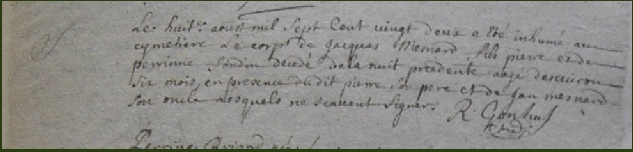 Le huit.e aoust mil Sept Cent vingt deux a été inhumé au
cymetiere Le corps de Jacques Mesnard fils pierre et de
perrinne decedé de la nuit precedente aagé denviron
Six mois, en presence du dit pierre pere et de Jan mesnard
Son oncle lesquels ne scavent Signer. R.